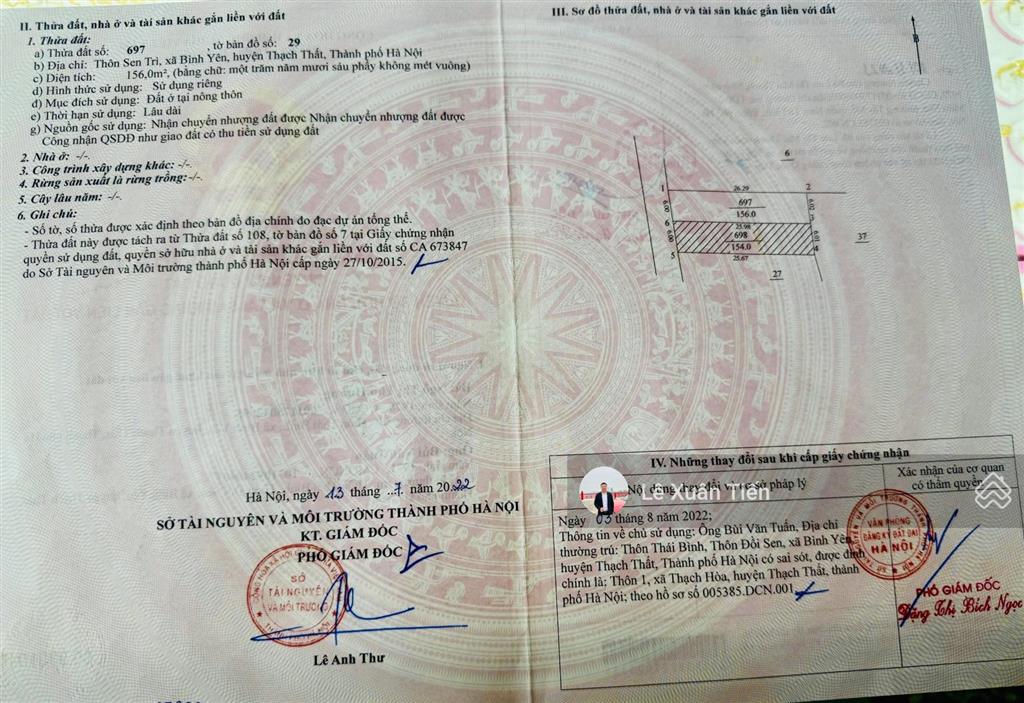 II. Thửa đất, nhà ở và tài sản khác gắn liền với đất
1. Thửa đất:
a) Thửa đất số: 697 , tờ bản đồ số: 29
b) Địa chỉ: Thôn Sen Trì, xã Bình Yên, huyện Thạch Thất, Thành phố Hà Nội
c) Diện tích: 156,0m², (bằng chữ: một trăm năm mươi sáu phẩy không mét vuông)
d) Hình thức sử dụng: Sử dụng riêng
đ) Mục đích sử dụng: Đất ở tại nông thôn
e) Thời hạn sử dụng: Lâu dài
g) Nguồn gốc sử dụng: Nhận chuyển nhượng đất được Nhận chuyển nhượng đất được
Công nhận QSDĐ như giao đất có thu tiền sử dụng đất
2. Nhà ở: -/-.
3. Công trình xây dựng khác: -/-.
4. Rừng sản xuất là rừng trồng: -/-.
5. Cây lâu năm: -/-.
6. Ghi chú:
- Số tờ, số thửa được xác định theo bản đồ địa chính đo đạc dự án tổng thể.
- Thửa đất này được tách ra từ Thửa đất số 108, tờ bản đồ số 7 tại Giấy chứng nhận
quyền sử dụng đất, quyền sở hữu nhà ở và tài sản khác gắn liền với đất số CA 673847
do Sở Tài nguyên và Môi trường thành phố Hà Nội cấp ngày 27/10/2015.
Hà Nội, ngày 13 tháng 7 năm 2022
SỞ TÀI NGUYÊN VÀ MÔI TRƯỜNG THÀNH PHỐ HÀ NỘI
KT. GIÁM ĐỐC
PHÓ GIÁM ĐỐC
SỞ
TÀI NGUYÊN
VÀ MÔI TRƯỜNG
Lê Anh Thư
III. Sơ đồ thửa đất, nhà ở và tài sản khác gắn liền với đất
B
6
1 26.29 2
6.00 697 6.02
156.0
6 25.98 3
6.00 698 6.01
154.0
5 25.67 4
37
27
IV. Những thay đổi sau khi cấp giấy chứng nhận
Nội dung thay đổi và cơ sở pháp lý
Xác nhận của cơ quan
có thẩm quyền
Lê Xuân Tiến
Ngày 03 tháng 8 năm 2022;
Thông tin về chủ sử dụng: Ông Bùi Văn Tuấn, Địa chỉ
thường trú: Thôn Thái Bình, Thôn Đồi Sen, xã Bình Yên,
huyện Thạch Thất, Thành phố Hà Nội có sai sót, được đính
chính là; Thôn 1, xã Thạch Hòa, huyện Thạch Thất, thành
phố Hà Nội; theo hồ sơ số 005385.DCN.001
VĂN PHÒNG
ĐĂNG KÝ ĐẤT ĐAI
HÀ NỘI
PHÓ GIÁM ĐỐC
Đặng Thị Bích Ngọc